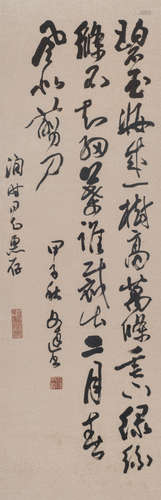 碧玉妝成一樹高萬條垂下綠絲
絛不知細葉誰裁出二月春
風似剪刀
甲子秋
同志惠存